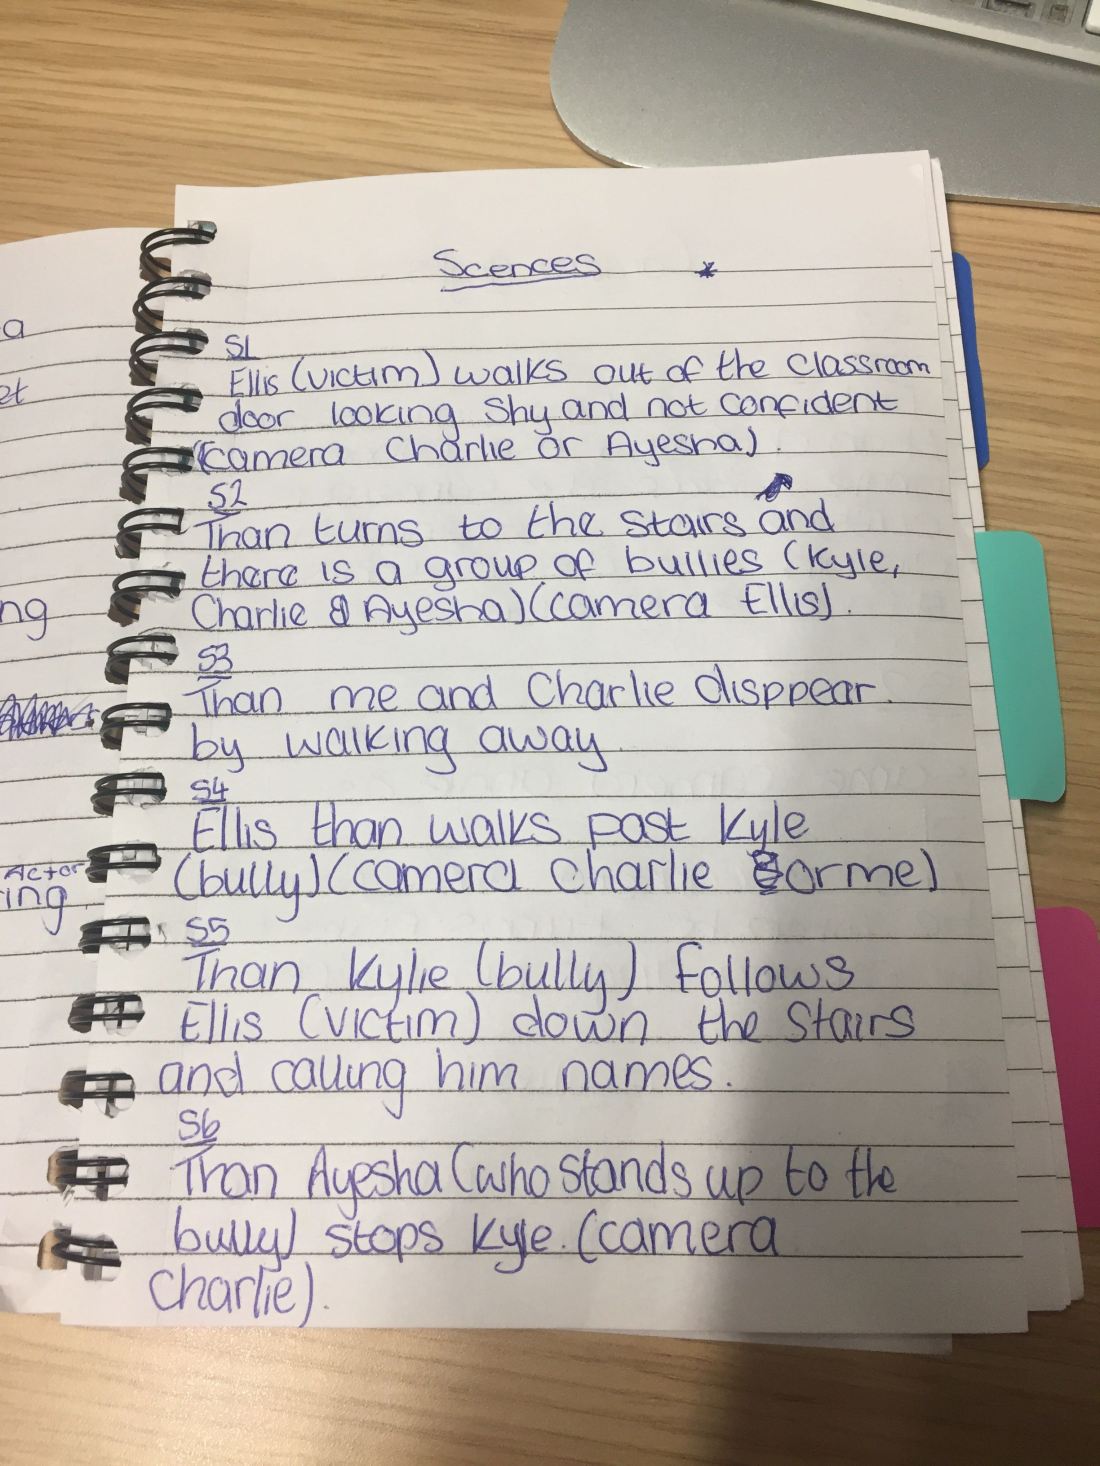 Scences *
S1
Ellis (victim) walks out of the classroom
door looking shy and not confident
(camera Charlie or Ayesha).
S2
Than turns to the stairs and
there is a group of bullies (Kyle,
Charlie & Ayesha) (camera Ellis).
S3
Than me and Charlie disppear
by walking away.
S4
Ellis than walks past Kyle
(bully) (camera Charlie or me)
S5
Than Kylie (bully) follows
Ellis (victim) down the stairs
and calling him names.
S6
Than Ayesha (who stands up to the
bully) stops Kyle. (camera
Charlie).
a
et
ng
Actor
ing